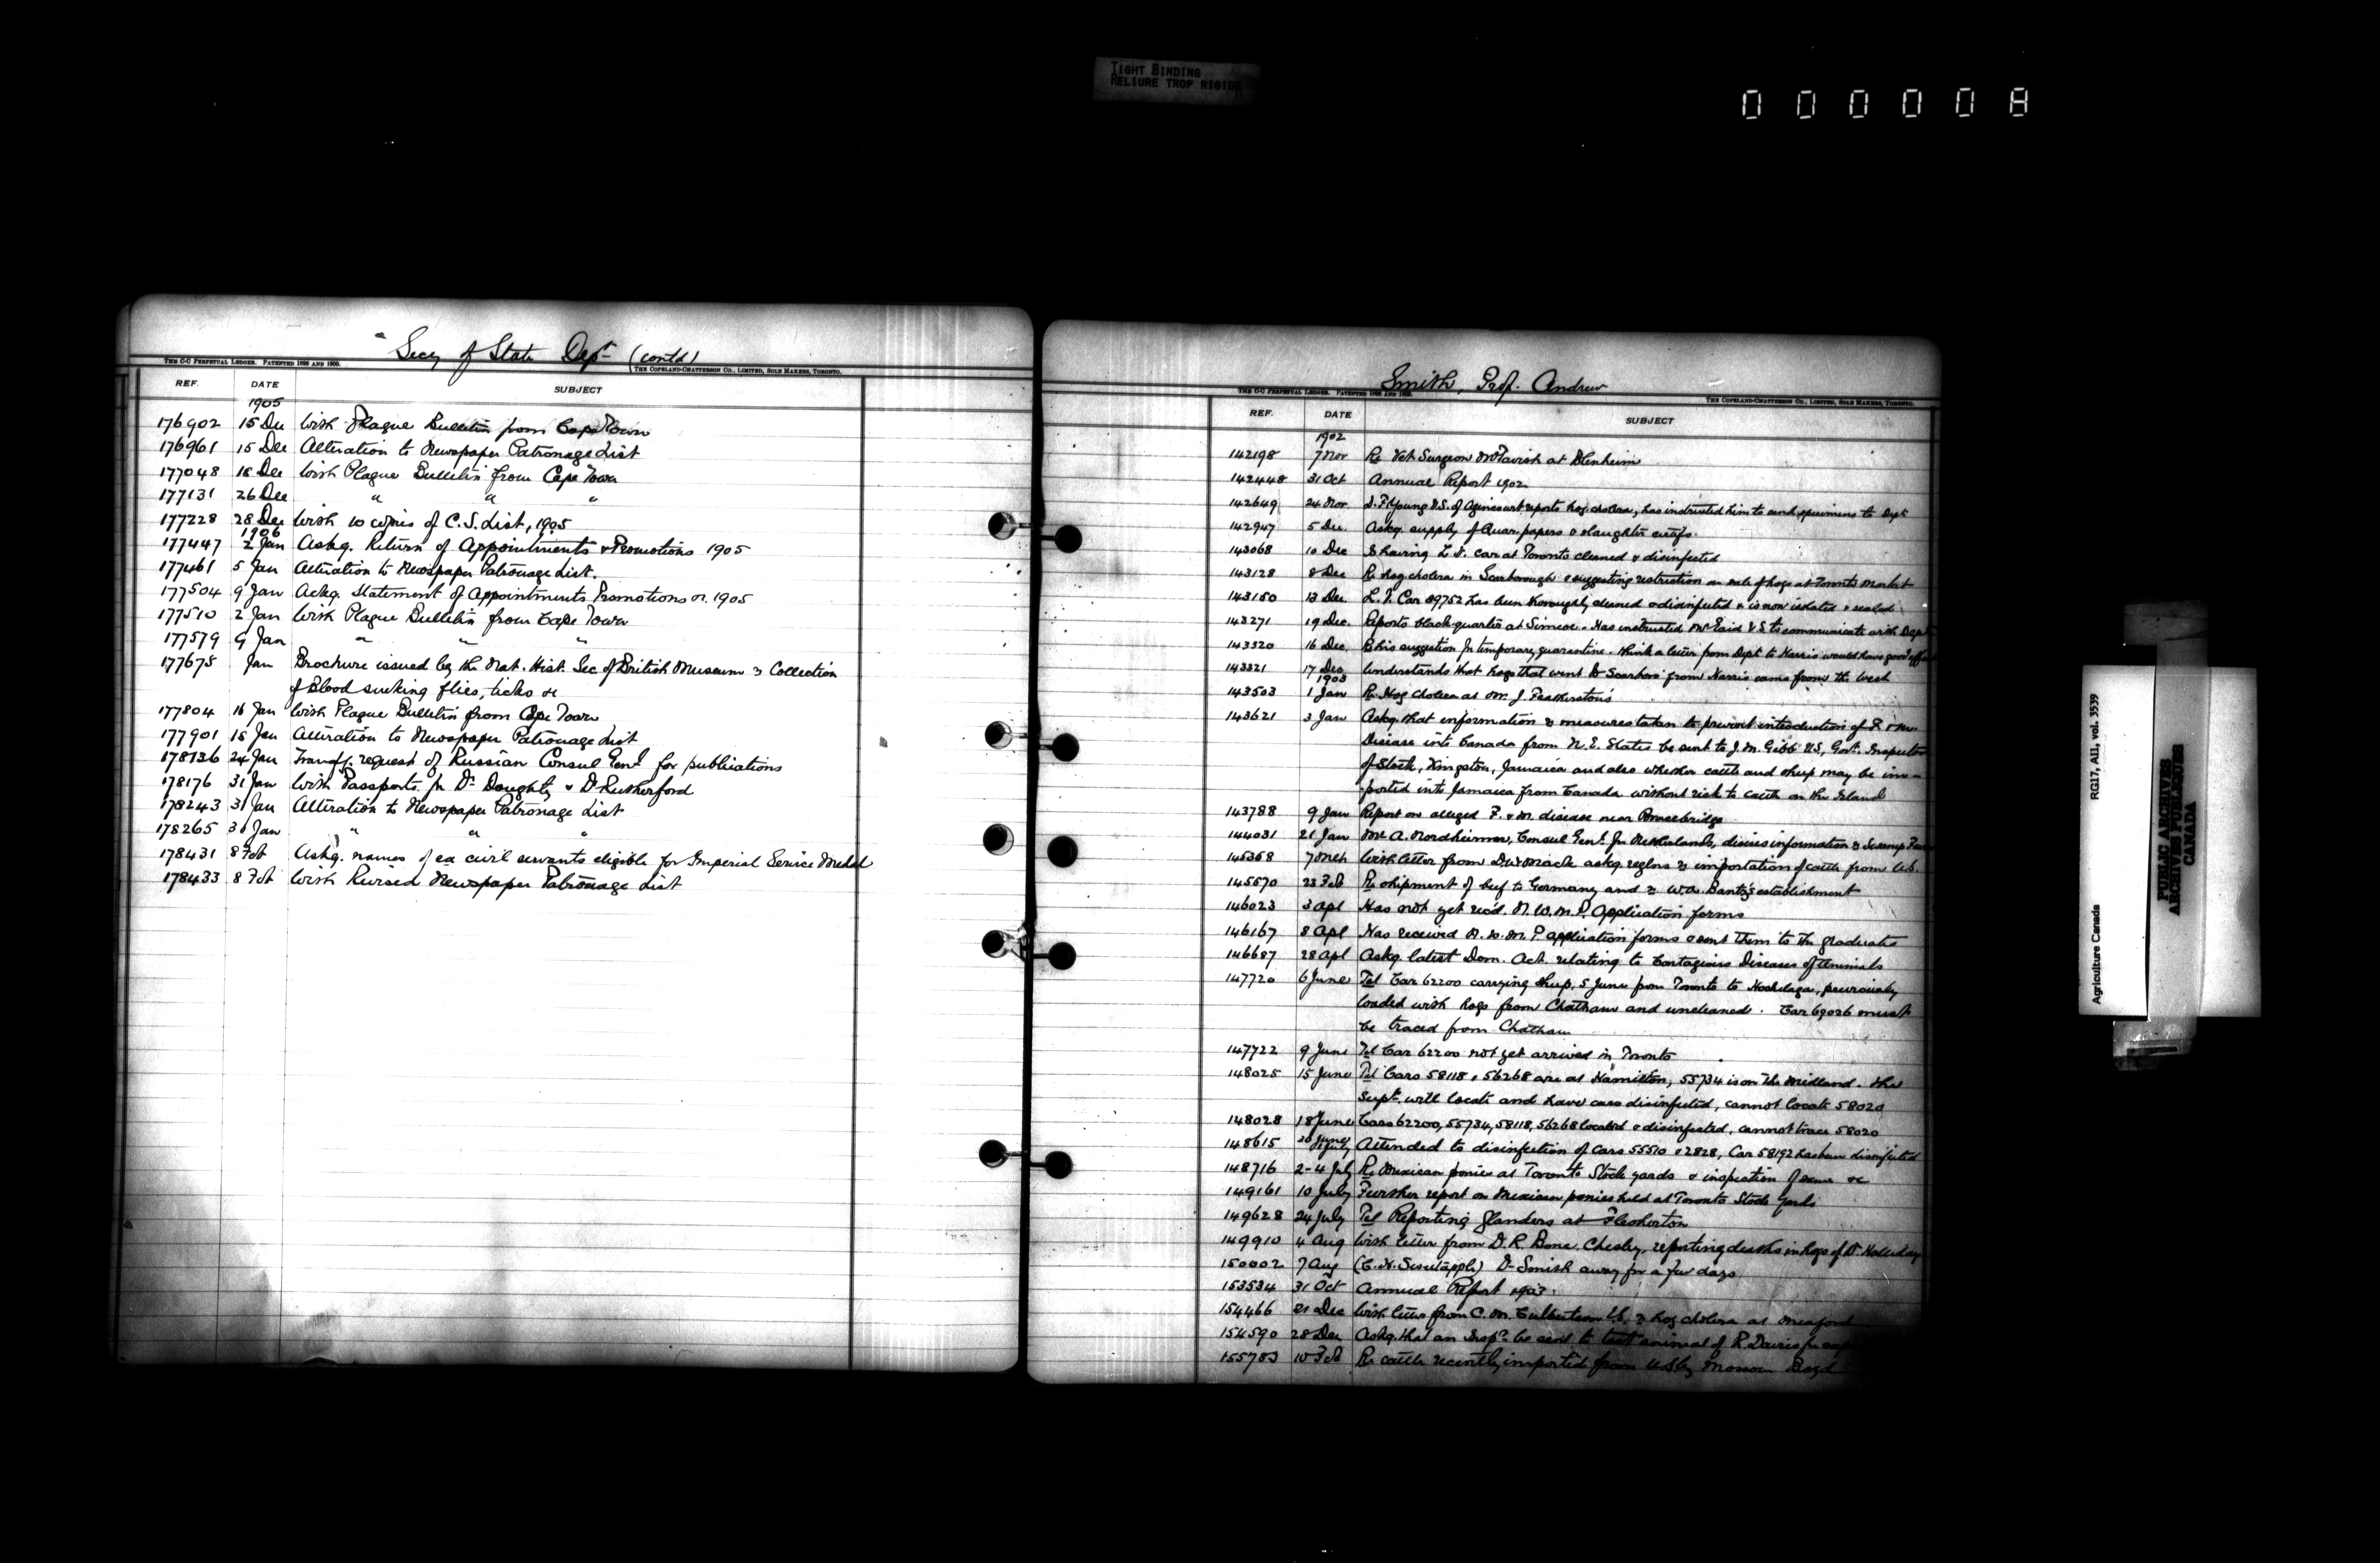 TIGHT BINDING
RELIURE TROP RIGIDE
000008
Secy of State Dept (contd)
THE C-C PERPETUAL LEDGER. PATENTED 1896 AND 1900.
THE COPELAND-CHATTERSON CO., LIMITED, SOLE MAKERS, TORONTO.
REF. DATE SUBJECT
1905
176902 15 Dec With Plague Bulletin from Cape Town
176961 15 Dec Alteration to Newspaper Patronage List
177048 18 Dec With Plague Bulletin from Cape Town
177131 26 Dec " " "
177228 28 Dec With 10 copies of C.S. List, 1905
1906
177447 2 Jan Askg. Return of Appointments & Promotions 1905
177461 5 Jan Alteration to Newspaper Patronage List.
177504 9 Jan Ackg. Statement of Appointments Promotions &c 1905
177510 2 Jan With Plague Bulletin from Cape Town
177579 9 Jan " " "
177675 Jan Brochure issued by the Nat. Hist. Sec. of British Museum re Collection
of Blood sucking flies, ticks &c
177804 16 Jan With Plague Bulletin from Cape Town
177901 15 Jan Alteration to Newspaper Patronage List
178136 24 Jan Transfg. request of Russian Consul Genl for publications
178176 31 Jan With Passports for Dr Doughty & Dr Rutherford
178243 31 Jan Alteration to Newspaper Patronage List
178265 30 Jan " " "
178431 8 Feb Askg. names of ex civil servants eligible for Imperial Service Medal
178433 8 Feb With Revised Newspaper Patronage List
Smith, Prof. Andrew
THE C-C PERPETUAL LEDGER. PATENTED 1896 AND 1900.
THE COPELAND-CHATTERSON CO., LIMITED, SOLE MAKERS, TORONTO.
REF. DATE SUBJECT
1902
142198 7 Nov Re Vet Surgeon McTavish at Blenheim
142448 31 Oct Annual Report 1902
142649 24 Nov Young V.S. of Agincourt reports hog cholera, has instructed him to send specimens to Dept
142947 5 Dec. Askg. supply of Quar. papers & slaughter certifs.
143068 10 Dec Re having L.V. car at Toronto cleaned & disinfected
143128 8 Dec Re hog cholera in Scarborough & suggesting restriction on sale of hogs at Toronto Market
143150 13 Dec L.V. Car 89752 has been thoroughly cleaned & disinfected & is now isolated & sealed
143271 19 Dec. Reports black-quarter at Simcoe. Has instructed V.S. to communicate with Dept
143320 16 Dec. Re his suggestion for temporary quarantine. Think a letter from Dept to Harris would have good effect
143321 17 Dec Understands that hogs that went to Scarboro' from Harris came from the West
1903
143503 1 Jan Re Hog cholera at Mr. J. Featherston's
143621 3 Jan Askg. that information re measures taken to prevent introduction of F. & M.
Disease into Canada from N.E. States be sent to J.M. Gibb V.S., Govt. Inspector
of Stock, Kingston, Jamaica and also whether cattle and sheep may be im-
ported into Jamaica from Canada without risk to cattle on the Island
143788 9 Jan Report on alleged F. & M. disease near Bracebridge
144031 21 Jan Mr A. Nordheimer, Consul Genl. for Netherlands, desires information re Swamp Fever
145368 7 Mch With letter from askg regns re importation of cattle from U.S.
145570 23 Feb Re shipment of beef to Germany and re establishment
146023 3 Apl Has not yet rec'd. N.W.M.P. Application forms
146167 8 Apl Has received N.W.M.P. application forms & sent them to the graduates
146687 28 Apl Askg latest Dom. Act. relating to Contagious Diseases of Animals
147720 6 June Tel Car 62200 carrying sheep, 5 June from Toronto to Hochelaga, previously
loaded with hogs from Chatham and uncleaned. Car 69026 must
be traced from Chatham
147722 9 June Tel Car 62200 not yet arrived in Toronto
148025 15 June Tel Cars 58118 & 56268 are at Hamilton, 55734 is on the Midland. The
Supt. will locate and have cars disinfected, cannot locate 58020
148028 18 June Cars 62200, 55734, 58118, 56268 located & disinfected, cannot trace 58020
148615 30 June Attended to disinfection of Cars 55510 & 2828, Car 58192 has been disinfected
148716 2-4 July Re Mexican ponies at Toronto Stock yards & inspection of same &c
149161 10 July Further report on Mexican ponies held at Toronto Stock Yards
149628 24 July Tel Reporting Glanders at Flesherton
149910 4 Aug With letter from D.R. Bone, Chesley, reporting deaths in hogs of Dr. Halliday
150002 7 Aug (C.H. Sweetapple) Dr Smith away for a few days
153534 31 Oct Annual Report 1903.
154466 21 Dec With letter from C.M. Culbertson V.S. re hog cholera at Meaford
154590 28 Dec Askg. that an Inspr be sent to test animal of R. Davies for
155783 10 Feb Re cattle recently imported from U.S. by Boyd
Agriculture Canada RG17, AII, vol. 3539
PUBLIC ARCHIVES
ARCHIVES PUBLIQUES
CANADA